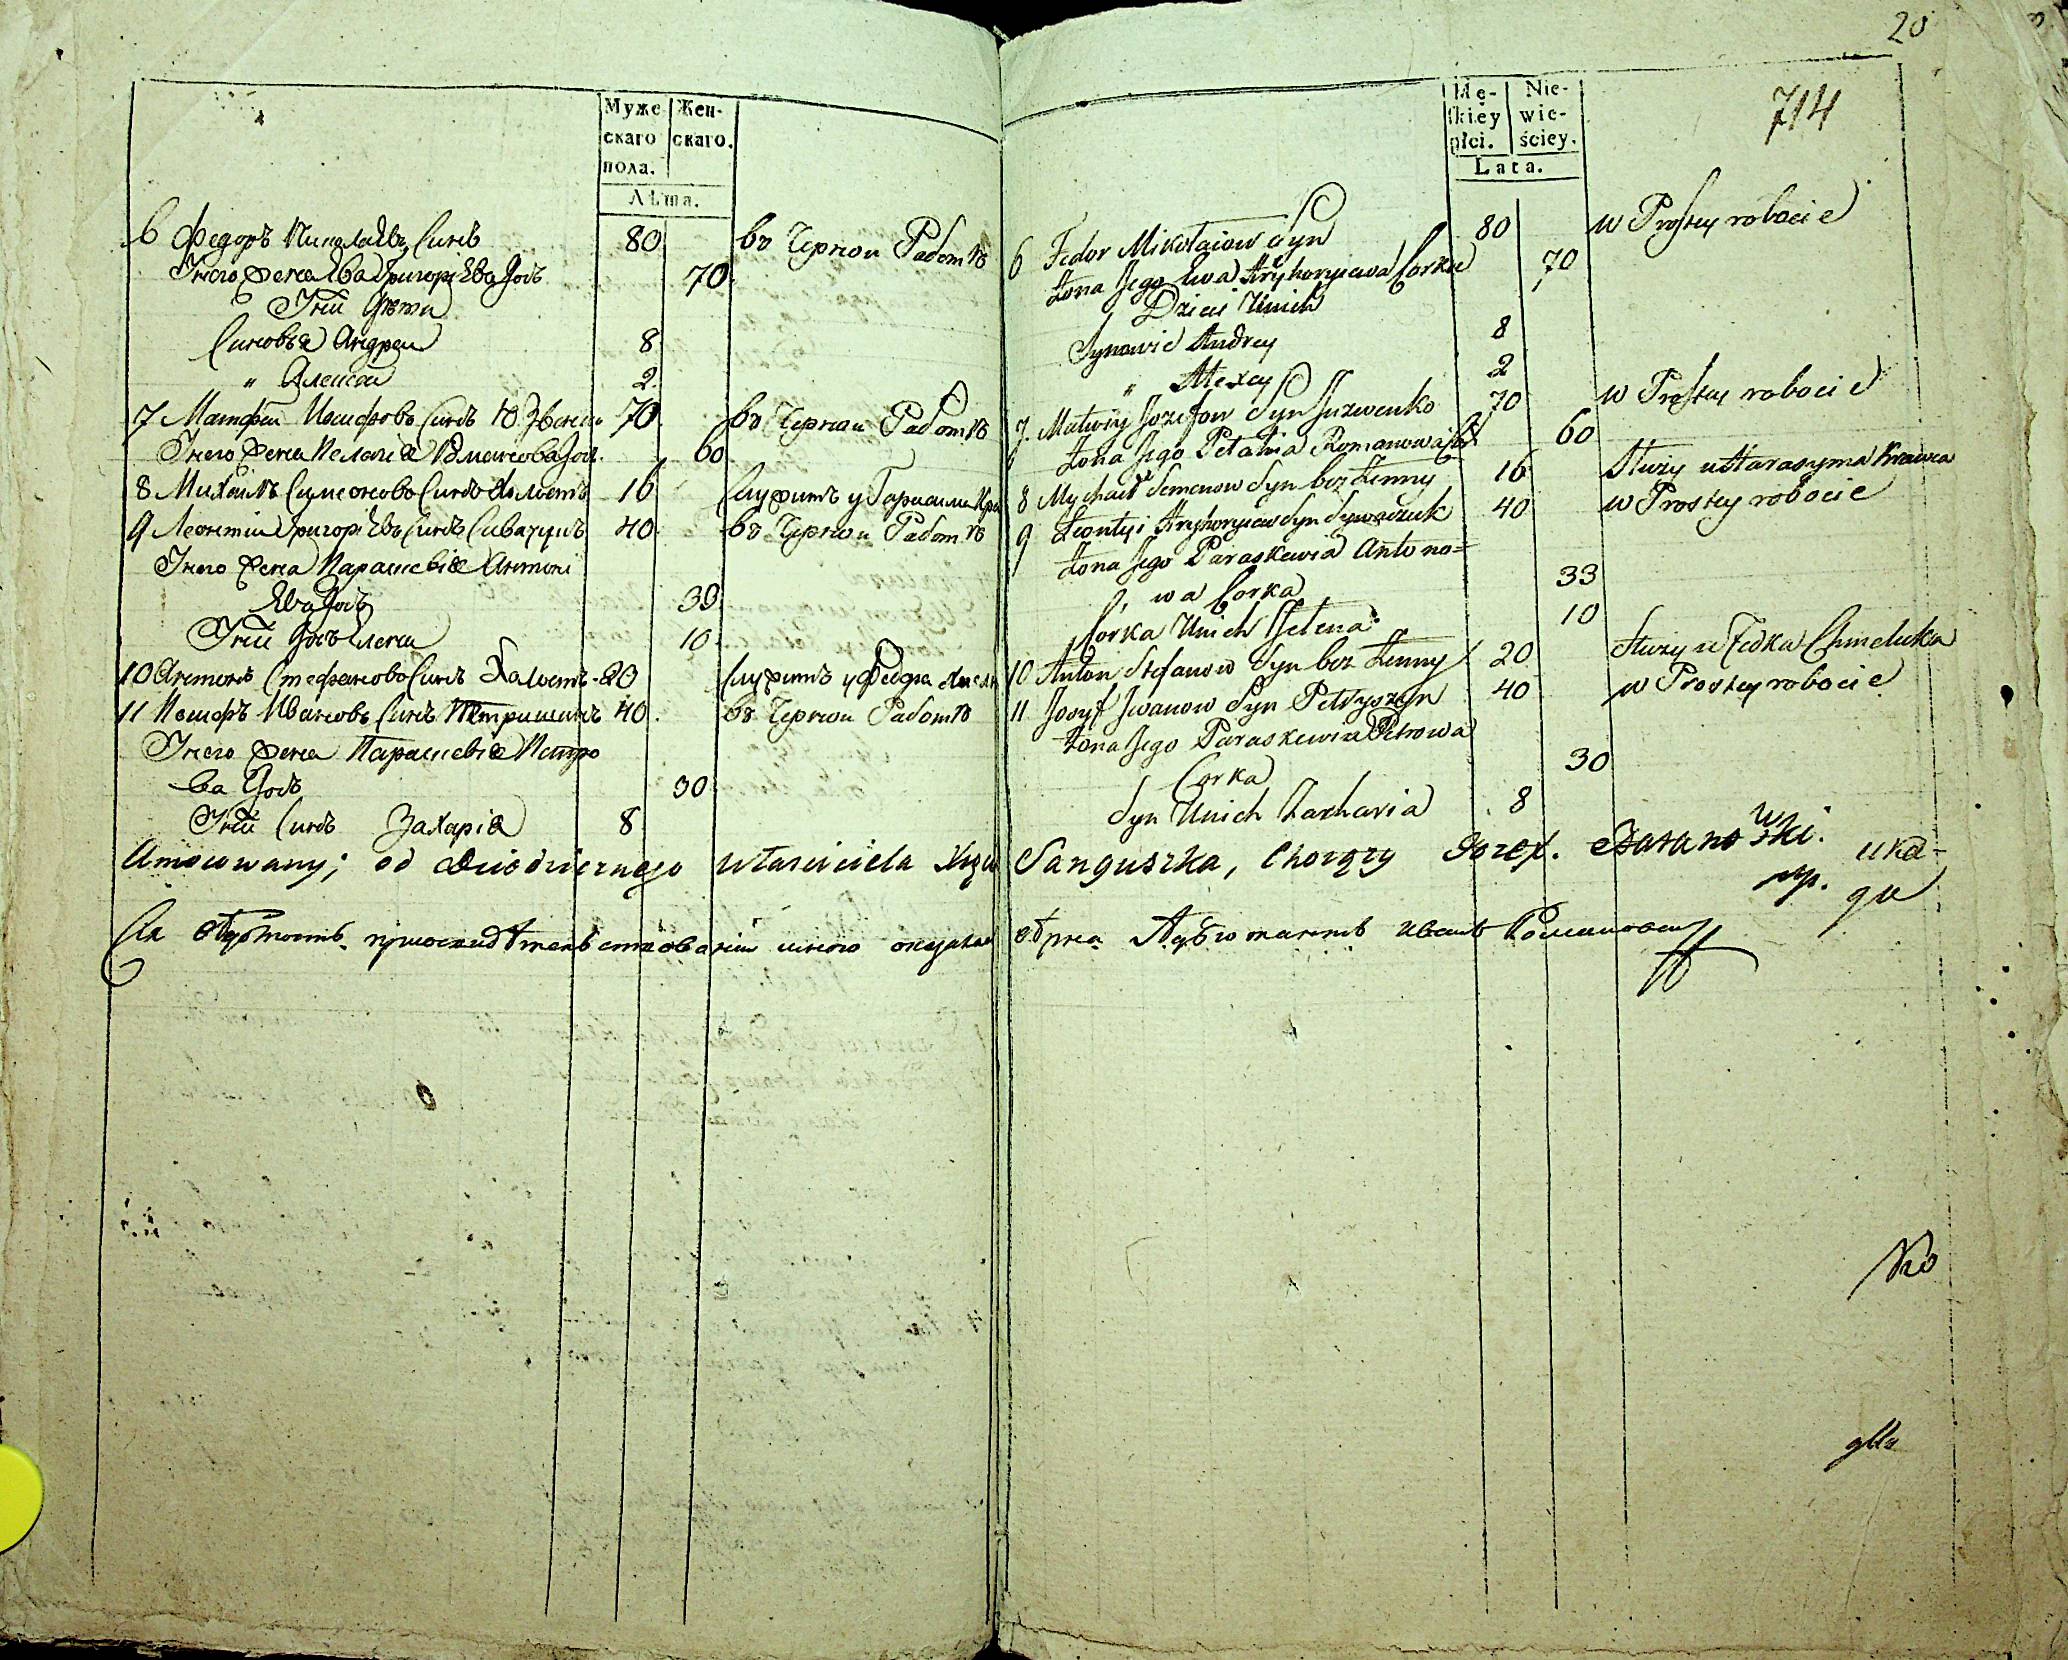 20
714
Муже-
скаго
пола.
Жен-
скаго.
Лѣта.
6 Федоръ Николаевъ Синъ 80 въ Черной Работѣ
Униего Жена Ева Григоріева Дочь 70
Униї Дѣти
Синовья Андрей 8
" Алексей 2
7 Матфей Иосифовъ Синъ Юзвенко 70 въ Черной Работѣ
Унего Жена Пелагія Романова Доч. 60
8 Михаилъ Симеоновъ Синъ Холостъ 16 Служитъ у Гарасима Кра
9 Леонтій Григоріевъ Синъ Сивачукъ 40 въ Черной Работѣ
Унего Жена Параскевія Антоні
ева Дочь 33
Униї Дочь Елена 10
10 Антонъ Стефановъ Синъ Холостъ 20 Служитъ у Федка Хмел
11 Иосифъ Ивановъ Синъ Петришинъ 40 въ Черной Работѣ
Унего Жена Параскевія Петро
ва Дочь 30
Униї Синъ Захарія 8
Mę-
skiey
płci.
Nie-
wie-
ściey.
Lata.
6 Fedor Mikołaiow Syn 80 w Prostey robocie
Żona Jego Ewa Hryhoryiewa Corka 70
Dzieci Unich
Synowie Andrey 8
" Alexey 2
7. Matwiy Jozefow Syn Juzwenko 70 w Prostey robocie
Żona Jego Pelahia Romanowa Cor 60
8 Mychaił Semenow Syn bez Żenny 16 Służy u Harasyma Krawca
9 Leontyi Hryhoryiew Syn Sywaczuk 40 w Prostey robocie
Żona Jego Paraskewia Antono=
wa Corka 33
Corka Unich Helena 10
10 Anton Stefanow Syn bez Żenny 20 Służy u Fedka Chmeluka
11 Josyf Jwanow Syn Petryszyn 40 w Prostey robocie
Żona Jego Paraskewia Petrowa
Corka 30
Syn Unich Zacharia 8
Umocowany; od Dziedzicznego Właściciela Xięcia Sanguszka, Chorąży Jozef. Baranowski. mp.